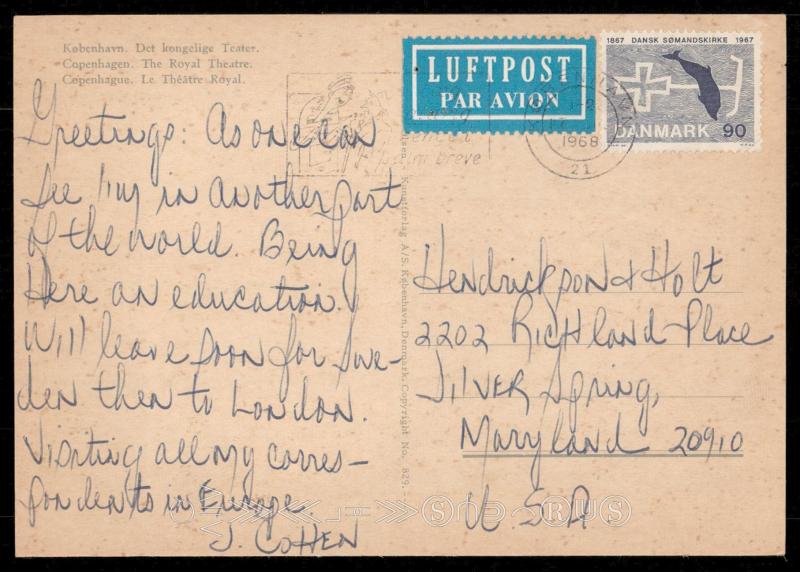 København. Det kongelige Teater.
Copenhagen. The Royal Theatre.
Copenhague. Le Théâtre Royal.
Greetings: As one can
see I'm in another part
of the world. Being
Here an education.
Will leave soon for Swe-
den then to London.
Visiting all my corres-
pondents in Europe.
J. COHEN
Kunstforlag A/S. København, Denmark. Copyright No. 829.
LUFTPOST
PAR AVION
1867 DANSK SØMANDSKIRKE 1967
DANMARK 90
KØBENHAVN
1968
21
breve
Hendrickson & Holt
2202 Richland-Place
Silver Spring,
Maryland 20910
U.S.A.